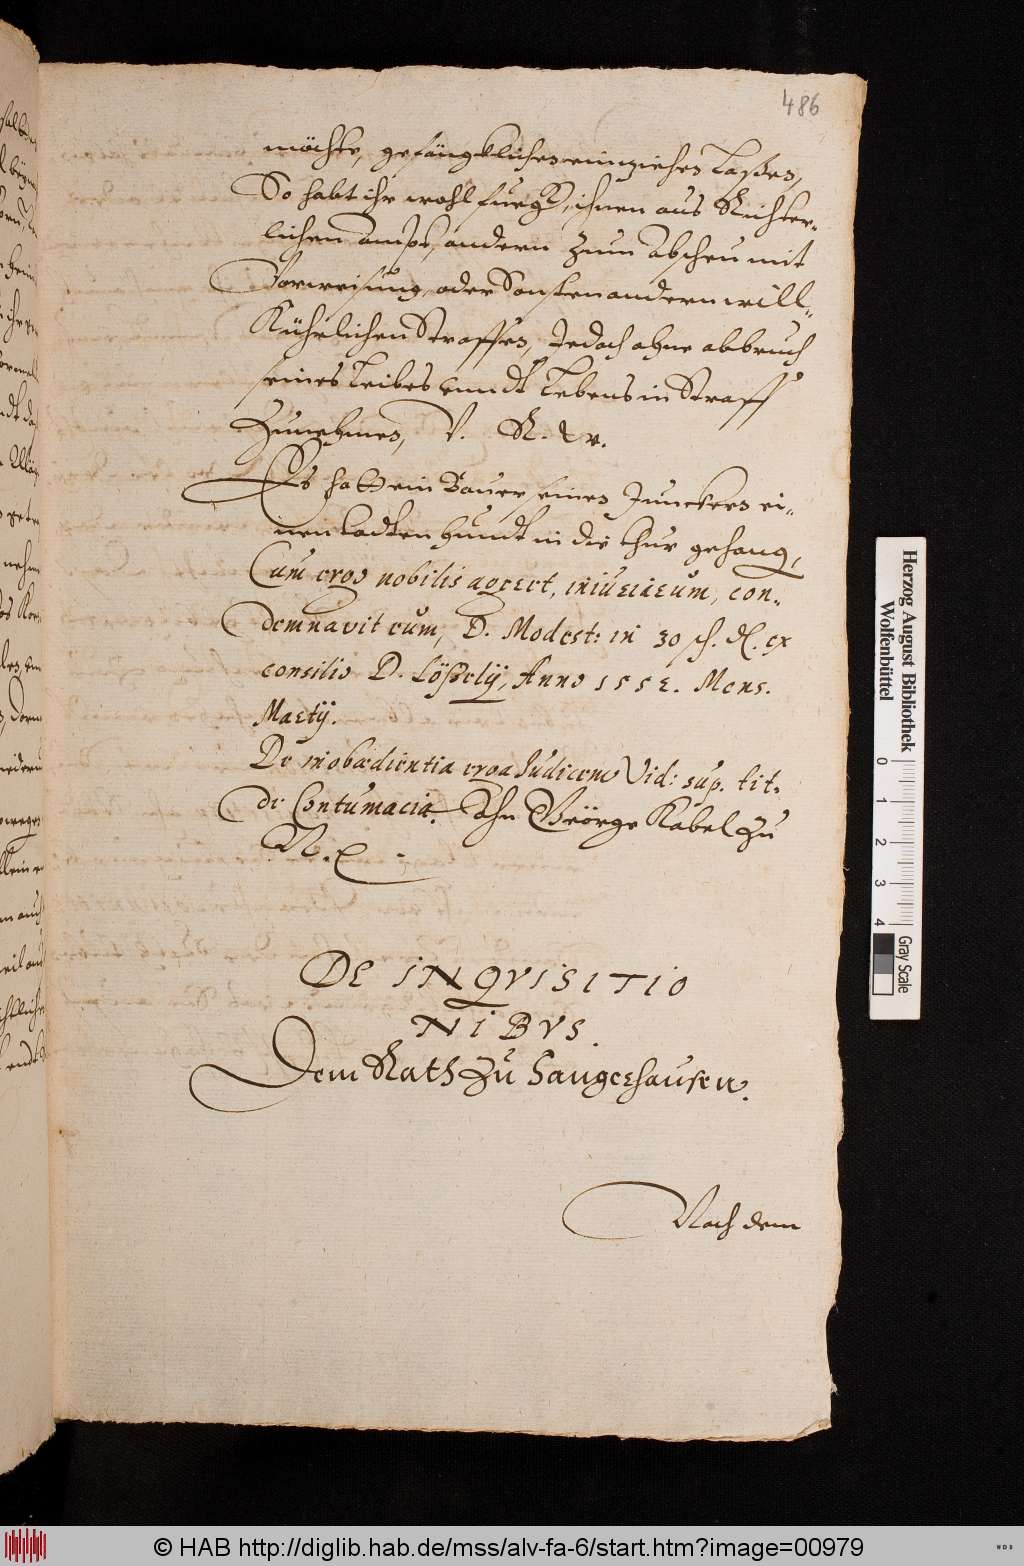 486
möchte, gefängklichen einziehen Laßen,
So habt ihr wohl fueg, ihnen aus Richter-
lichen ampt, andern zum abscheu mit
Vorweisung, oder Sonsten andern will-
Kührlichen Straffen, Jedoch ohne abbruch
seines Leibes vnndt Lebens in Straff
Zunehmen, V. R. W.
Es hatt ein Bauer seinen Junckern ei-
nen todten Hundt in die thür gehang,
Cum ergo nobilis ageret, iniuriarum, con-
demnavit eum, D. Modest: in 30 ſch. ex
consilio D. Lößelij, Anno 1552. Mens.
Martij.
De inobædientia erga Iudicem Vid: sup. tit.
de Contumacia. Ahn Geörge Kabel zu
N. E.
DE INQVISITIO
NIBVS.
Dem Rath zu Sangerhausen.
Nach dem
Herzog August Bibliothek
Wolfenbüttel
0 1 2 3 4
Gray Scale
© HAB http://diglib.hab.de/mss/alv-fa-6/start.htm?image=00979